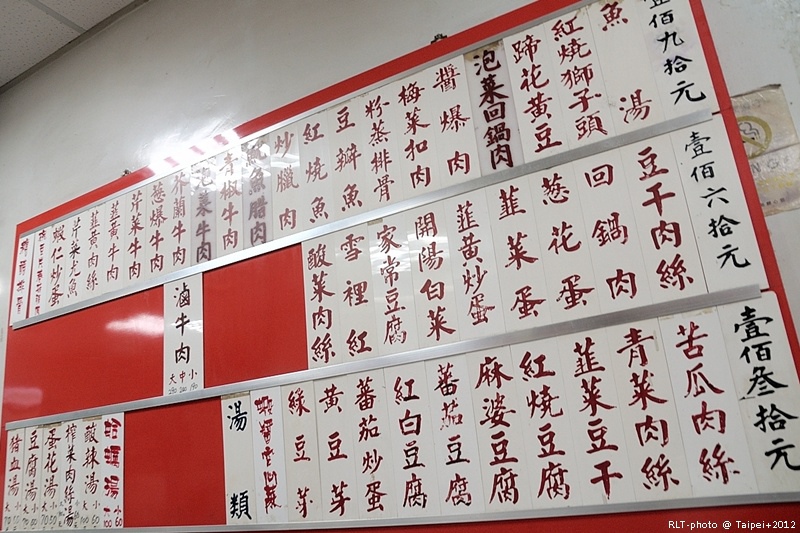 壹佰九拾元
魚湯
紅燒獅子頭
蹄花黃豆
泡菜回鍋肉
醬爆肉
梅菜扣肉
粉蒸排骨
豆瓣魚
紅燒魚
炒臘肉
魷魚腊肉
青椒牛肉
泡菜牛肉
芥蘭牛肉
葱爆牛肉
芹菜牛肉
韮黃牛肉
韮黃肉絲
芹菜尤魚
蝦仁炒蛋
壹佰六拾元
豆干肉絲
回鍋肉
葱花蛋
韮菜蛋
韮黃炒蛋
開陽白菜
家常豆腐
雪裡紅
酸菜肉絲
滷牛肉
大中小
壹佰叁拾元
苦瓜肉絲
青菜肉絲
韮菜豆干
紅燒豆腐
麻婆豆腐
番茄豆腐
紅白豆腐
番茄炒蛋
黃豆芽
綠豆芽
湯類
酸辣湯
榨菜肉絲湯
蛋花湯
豆腐湯
豬血湯
RLT-photo @ Taipei+2012